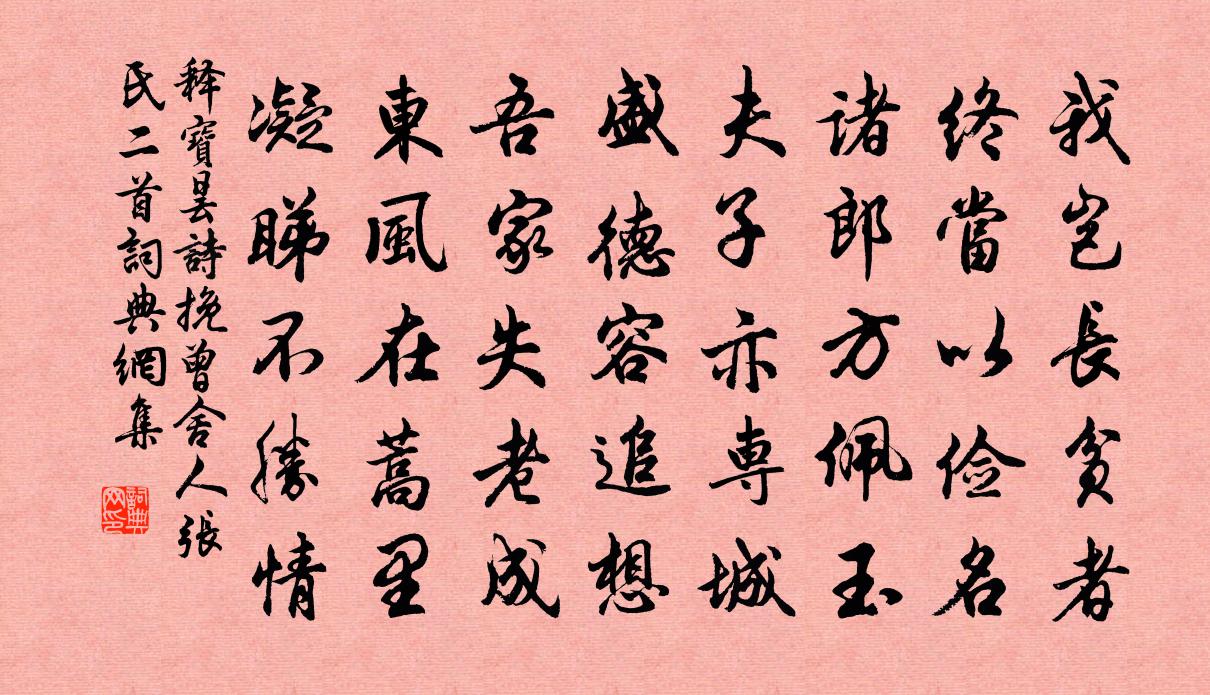 我岂長貧者
終當以儉名
諸郎方佩玉
夫子亦専城
盛德容追想
吾家失老成
東風在蒿里
凝睇不勝情
释寶曇詩挽曾舍人張
氏二首詞典網集
詞典
网印